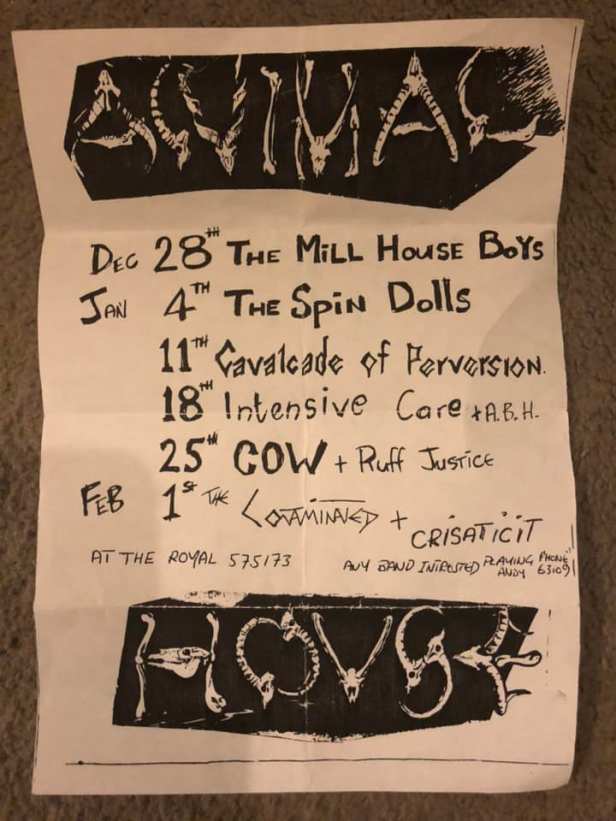 ANIMAL
DEC 28TH THE MiLL HOUSE BoYS
JAN 4TH THE SPiN Dolls
11TH Cavalcade of Perversion.
18TH Intensive Care + A.B.H.
25TH COW + Ruff JUSTiCE
FEB 1st THE COTAMINATED + CRISATICIT
AT THE ROYAL 575173
ANY BAND INTRESTED PLAYING PHONE ANDY 63109
HOUSE